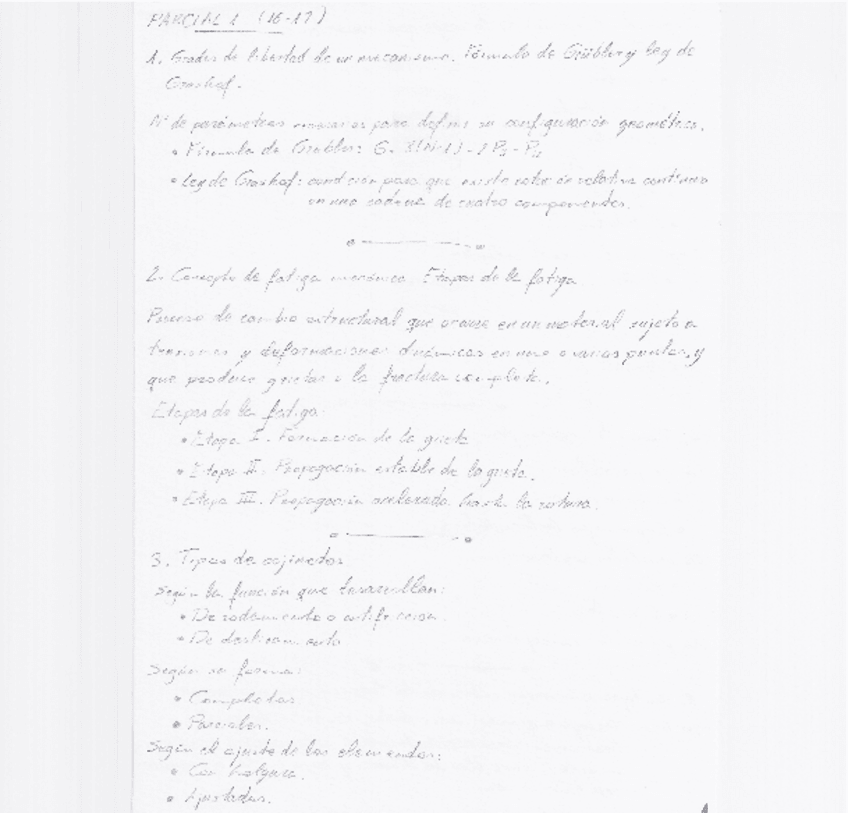 PARCIAL 1 (16-17)
1. Grados de libertad de un mecanismo. Fórmula de Grübler y Ley de
Grashof.
Nº de parámetros necesarios para definir su configuración geométrica.
• Fórmula de Grübler: G = 3(N-1) - 2P
• Ley de Grashof: condición para que exista rotación relativa continua
en una cadena de cuatro componentes.
2. Concepto de fatiga mecánica. Etapas de la fatiga
Proceso de cambio estructural que ocurre en un material sujeto a
tensiones y deformaciones dinámicas en uno o varios puntos, y
que produce grietas o la fractura completa.
Etapas de la fatiga:
• Etapa I. Formación de la grieta
• Etapa II. Propagación estable de la grieta.
• Etapa III. Propagación acelerada hasta la rotura.
3. Tipos de cojinetes
Según la función que desarrollan:
• De rodamiento o antifricción.
• De deslizamiento
Según su forma:
• Completos
• Parciales.
Según el ajuste de los elementos:
• Con holgura.
• Ajustados.